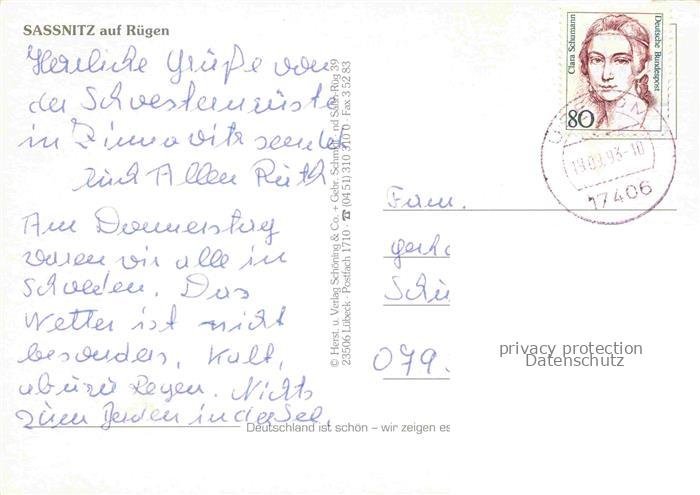 SASSNITZ auf Rügen
Herzliche Grüße von
der Schwesternrüste
in Zinnowitz sendet
Euch Allen Ruth
Am Donnerstag
waren wir alle in
Schweden. Das
Wetter ist nicht
besonders, Kalt,
ab u zu Regen. Nichts
zum Baden in der See.
© Herst. u. Verlag Schöning & Co. + Gebr. Schmidt
23506 Lübeck · Postfach 1710 · ☎ (04 51) 310 310 · Fax 3 52 83
Deutschland ist schön – wir zeigen es
Clara Schumann
Deutsche Bundespost
80
19.09.93-10
17406
Fam.
Gerh
Schü
079
privacy protection
Datenschutz